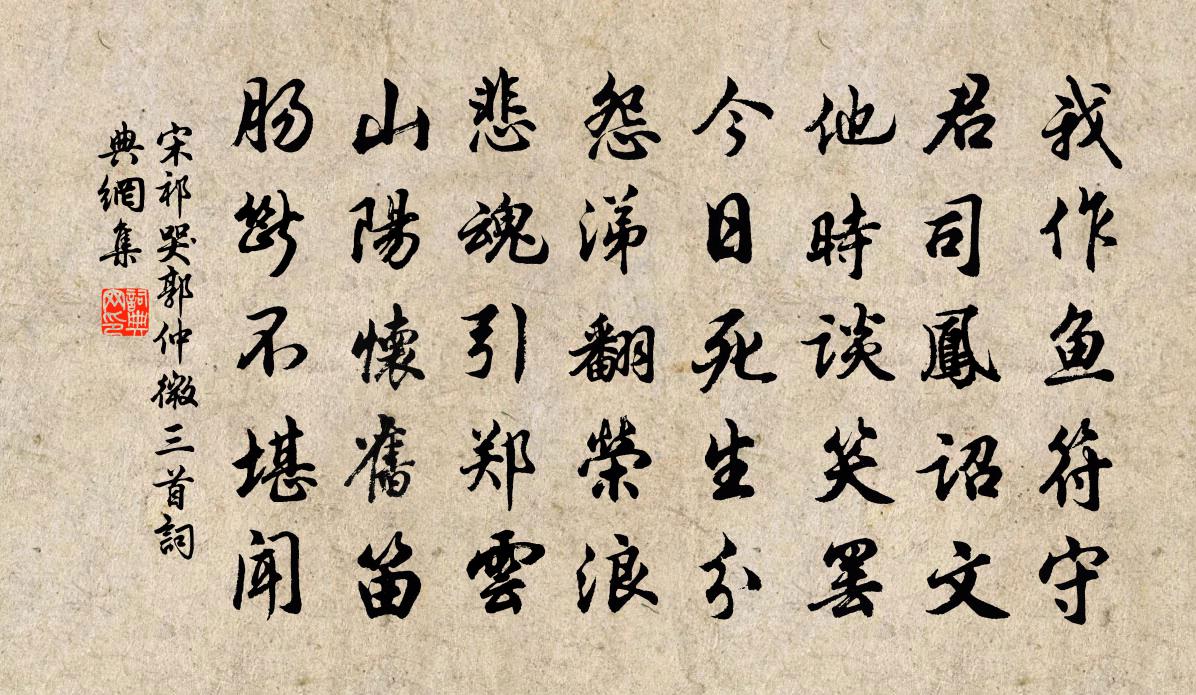 我作鱼符守
君司鳳詔文
他時談笑罢
今日死生分
怨涕翻榮浪
悲魂引郑雲
山陽懷舊笛
肠斷不堪闻
宋祁哭郭仲微三首詞
典網集
詞典
网印